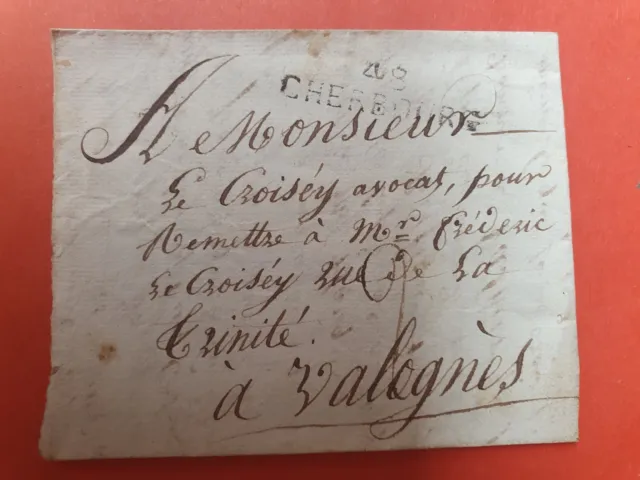 208
CHERBOURG
A Monsieur
Le Croiséy avocat, pour
Remettre à Mr. Fréderic
Le Croiséy rue de La
Trinité.
à Valognès